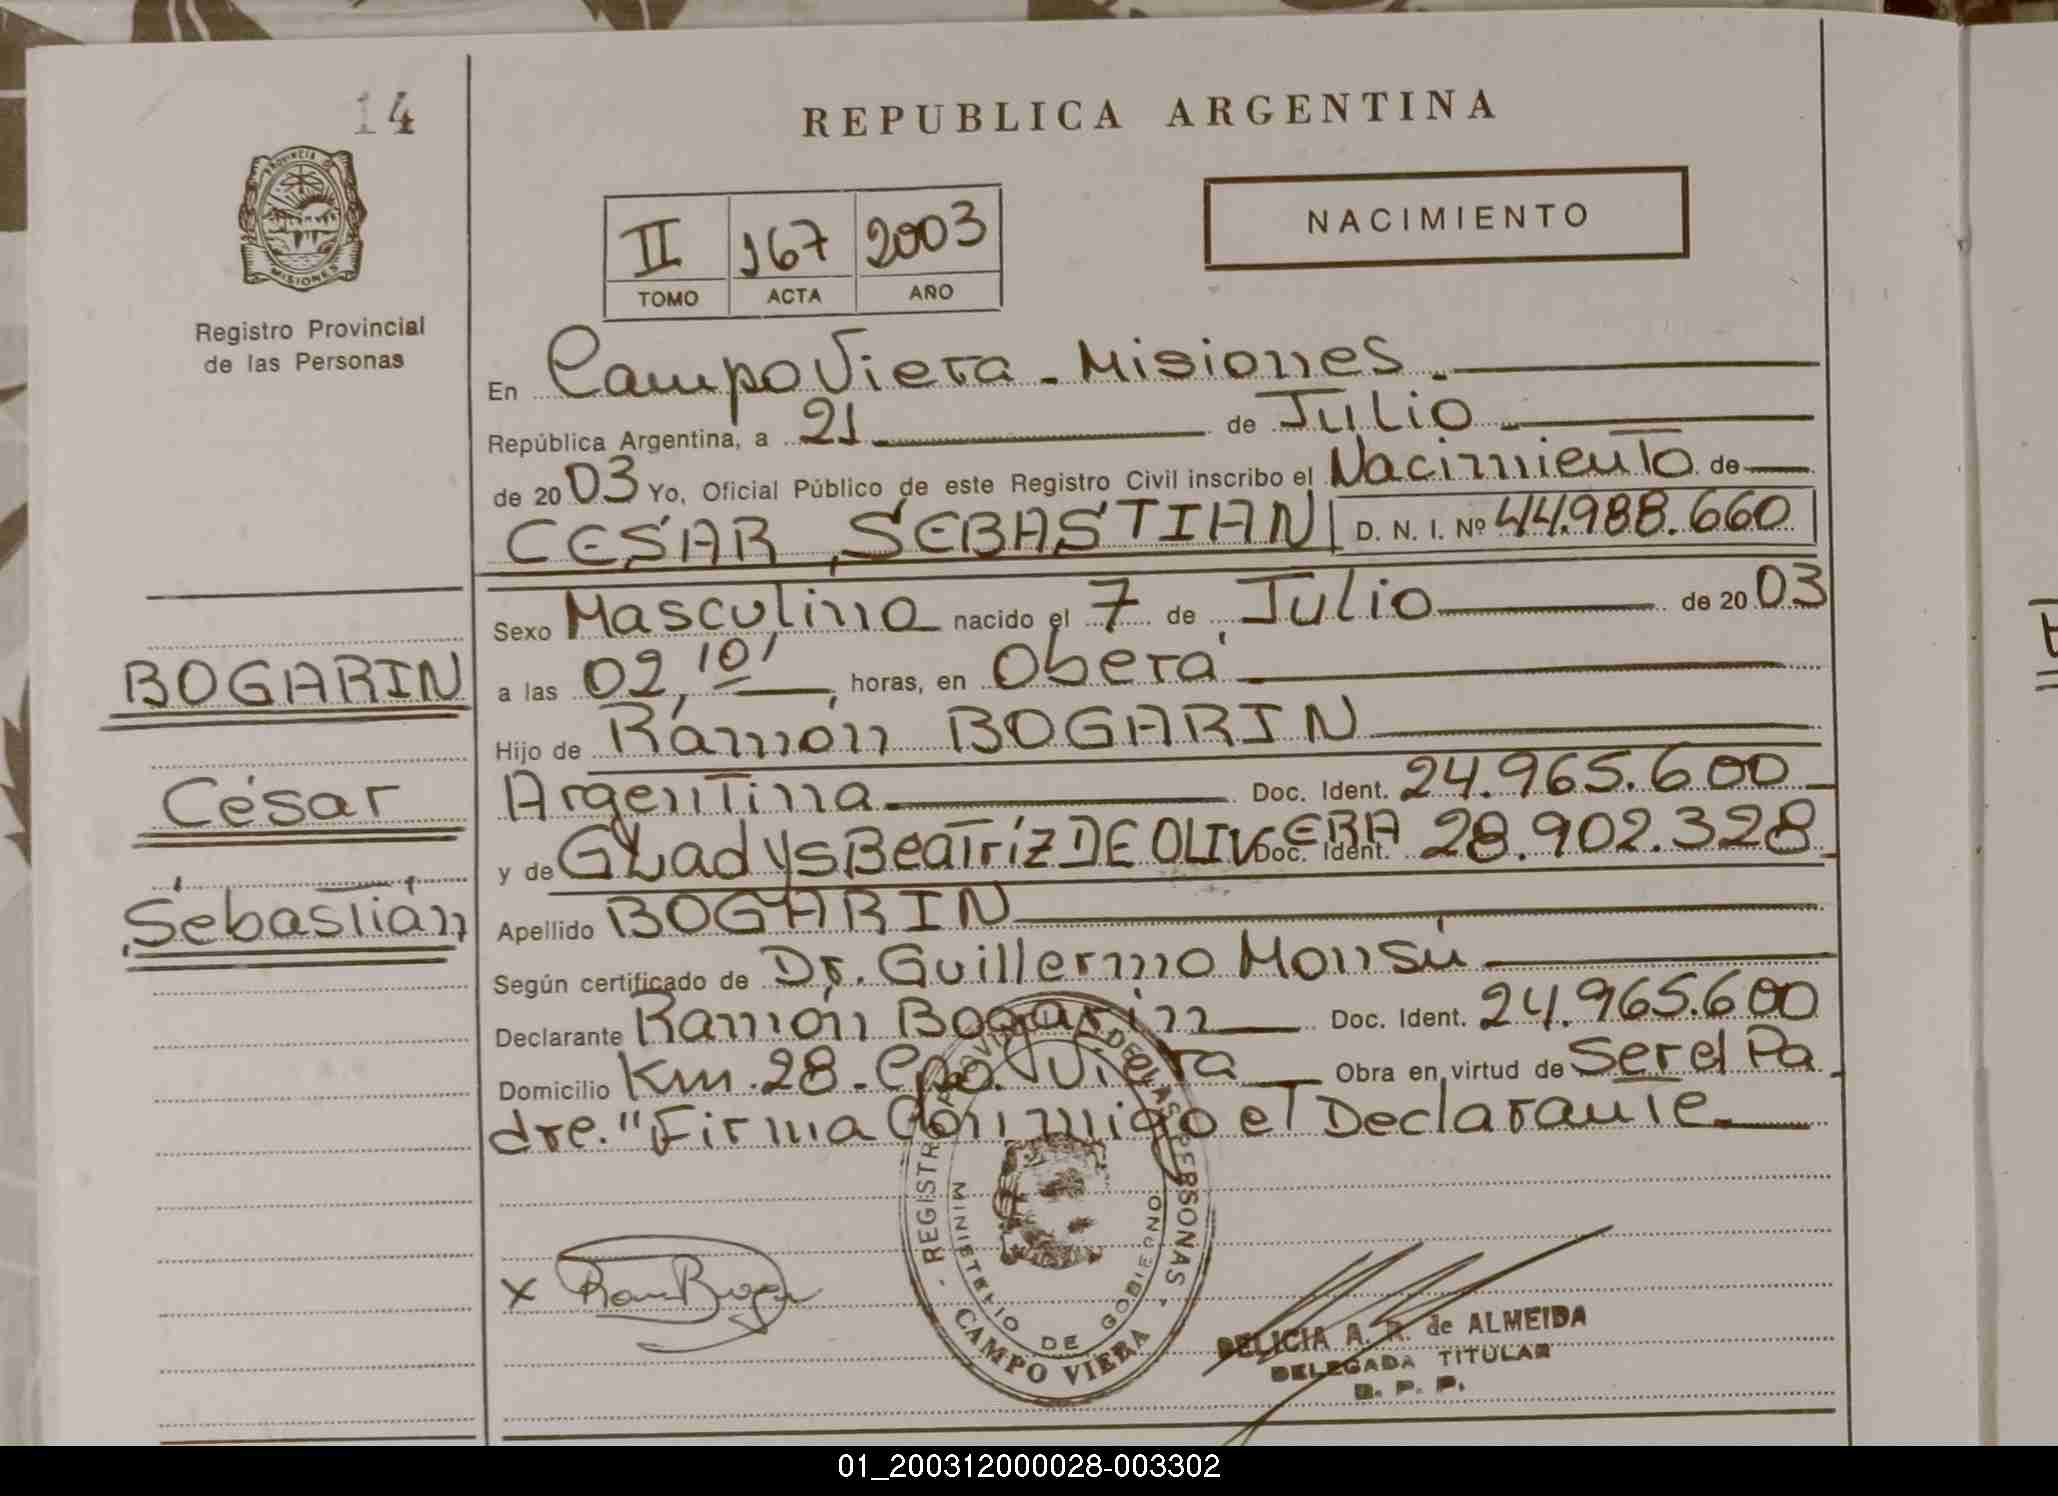 14
REPUBLICA ARGENTINA
PROVINCIA D
MISIONES
Registro Provincial
de las Personas
II 167 2003
TOMO ACTA AÑO
NACIMIENTO
En Campo Viera - Misiones.
República Argentina, a 21 de Julio
de 2003 Yo, Oficial Público de este Registro Civil inscribo el Nacimiento de
CESAR SEBASTIAN D. N. I. Nº 44.988.660
Sexo Masculino nacido el 7 de Julio de 2003
a las 02,10' horas, en Oberá
Hijo de Ramón BOGARIN
Argentina Doc. Ident. 24.965.600
y de GLadys Beatríz DE OLIVERA Doc. Ident. 28.902.328
Apellido BOGARIN
Según certificado de Dr. Guillermo Monsú
Declarante Ramón Bogarin Doc. Ident. 24.965.600
Domicilio Km. 28 - Cpo. Viera Obra en virtud de Ser el Pa
dre. "Firma Conmigo el Declarante
BOGARIN
César
Sebastián
X
REGISTR DE LAS PERSONAS
MINISTERIO DE GOBIERNO
CAMPO VIERA
DELICIA A. R. de ALMEIDA
DELEGADA TITULAR
R. P. P.
01_200312000028-003302